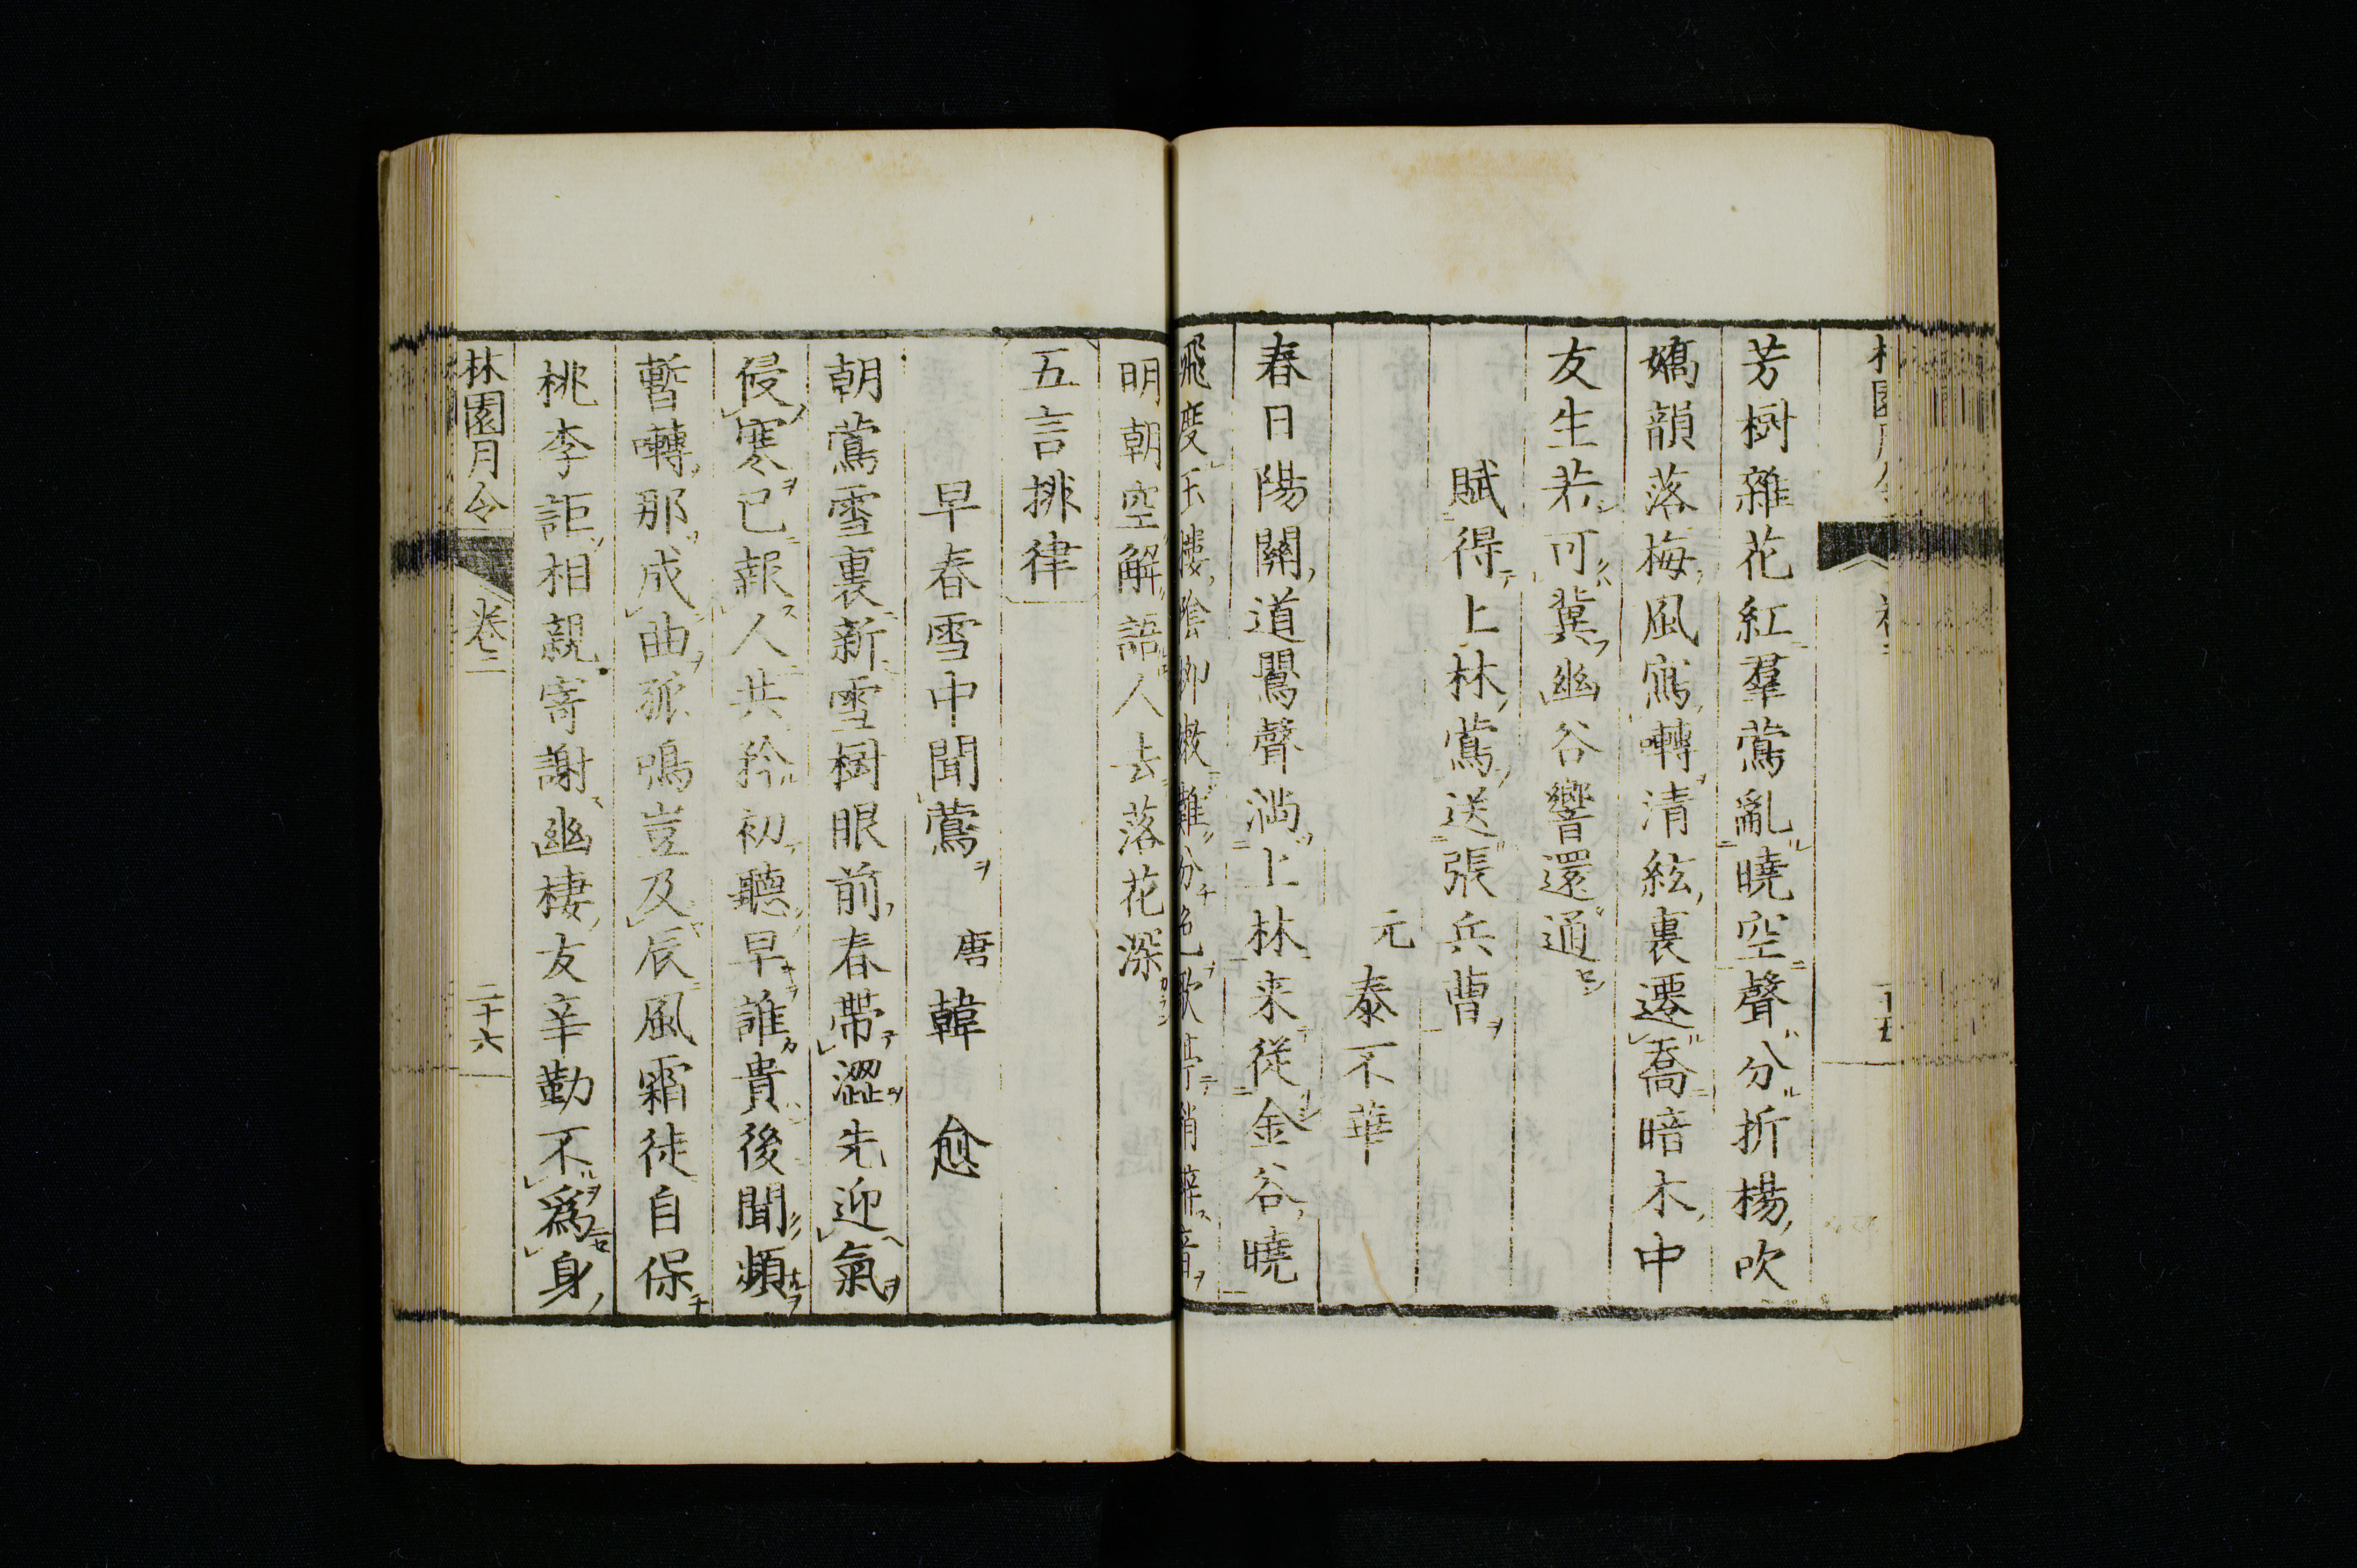 芳樹雜花紅羣鶯亂曉空聲分折楊吹
嬌韻落梅風寫囀清絃裏遷喬暗木中
友生若可冀幽谷響還通
賦得上林鶯送張兵曹
元泰不華
春日陽關道鸎聲満上林来從金谷曉
飛度玉樓陰柳嫩難分色歌亭稍辨音
明朝空解語人去落花深
五言排律
早春雪中聞鶯 唐韓愈
朝鶯雪裏新雪樹眼前春帶澀先迎氣
侵寒已報人共矜初聽早誰貴後聞頻
暫囀那成曲孤鳴豈及辰風霜徒自保
桃李詎相親寄謝幽棲友辛勤不爲身
林園月令 卷三 二十六